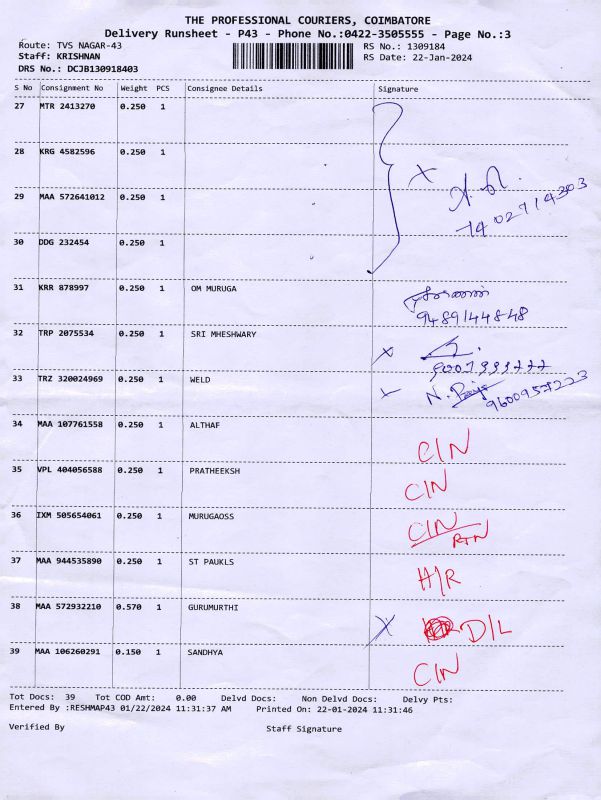 THE PROFESSIONAL COURIERS, COIMBATORE
Delivery Runsheet - P43 - Phone No.:0422-3505555 - Page No.:3
Route: TVS NAGAR-43 RS No.: 1309184
Staff: KRISHNAN RS Date: 22-Jan-2024
DRS No.: DCJB130918403
S No Consignment No Weight PCS Consignee Details Signature
27 MTR 2413270 0.250 1
28 KRG 4582596 0.250 1
29 MAA 572641012 0.250 1
7402714303
30 DDG 232454 0.250 1
31 KRR 878997 0.250 1 OM MURUGA
9489144848
32 TRP 2075534 0.250 1 SRI MHESHWARY
33 TRZ 320024969 0.250 1 WELD N.
34 MAA 107761558 0.250 1 ALTHAF
CIN
35 VPL 404056588 0.250 1 PRATHEEKSH
CIN
36 IXM 505654061 0.250 1 MURUGAOSS
CIN
RTN
37 MAA 944535890 0.250 1 ST PAUKLS
H/R
38 MAA 572932210 0.570 1 GURUMURTHI
D/L
39 MAA 106260291 0.150 1 SANDHYA
CIN
Tot Docs: 39 Tot COD Amt: 0.00 Delvd Docs: Non Delvd Docs: Delvy Pts:
Entered By :RESHMAP43 01/22/2024 11:31:37 AM Printed On: 22-01-2024 11:31:46
Verified By Staff Signature